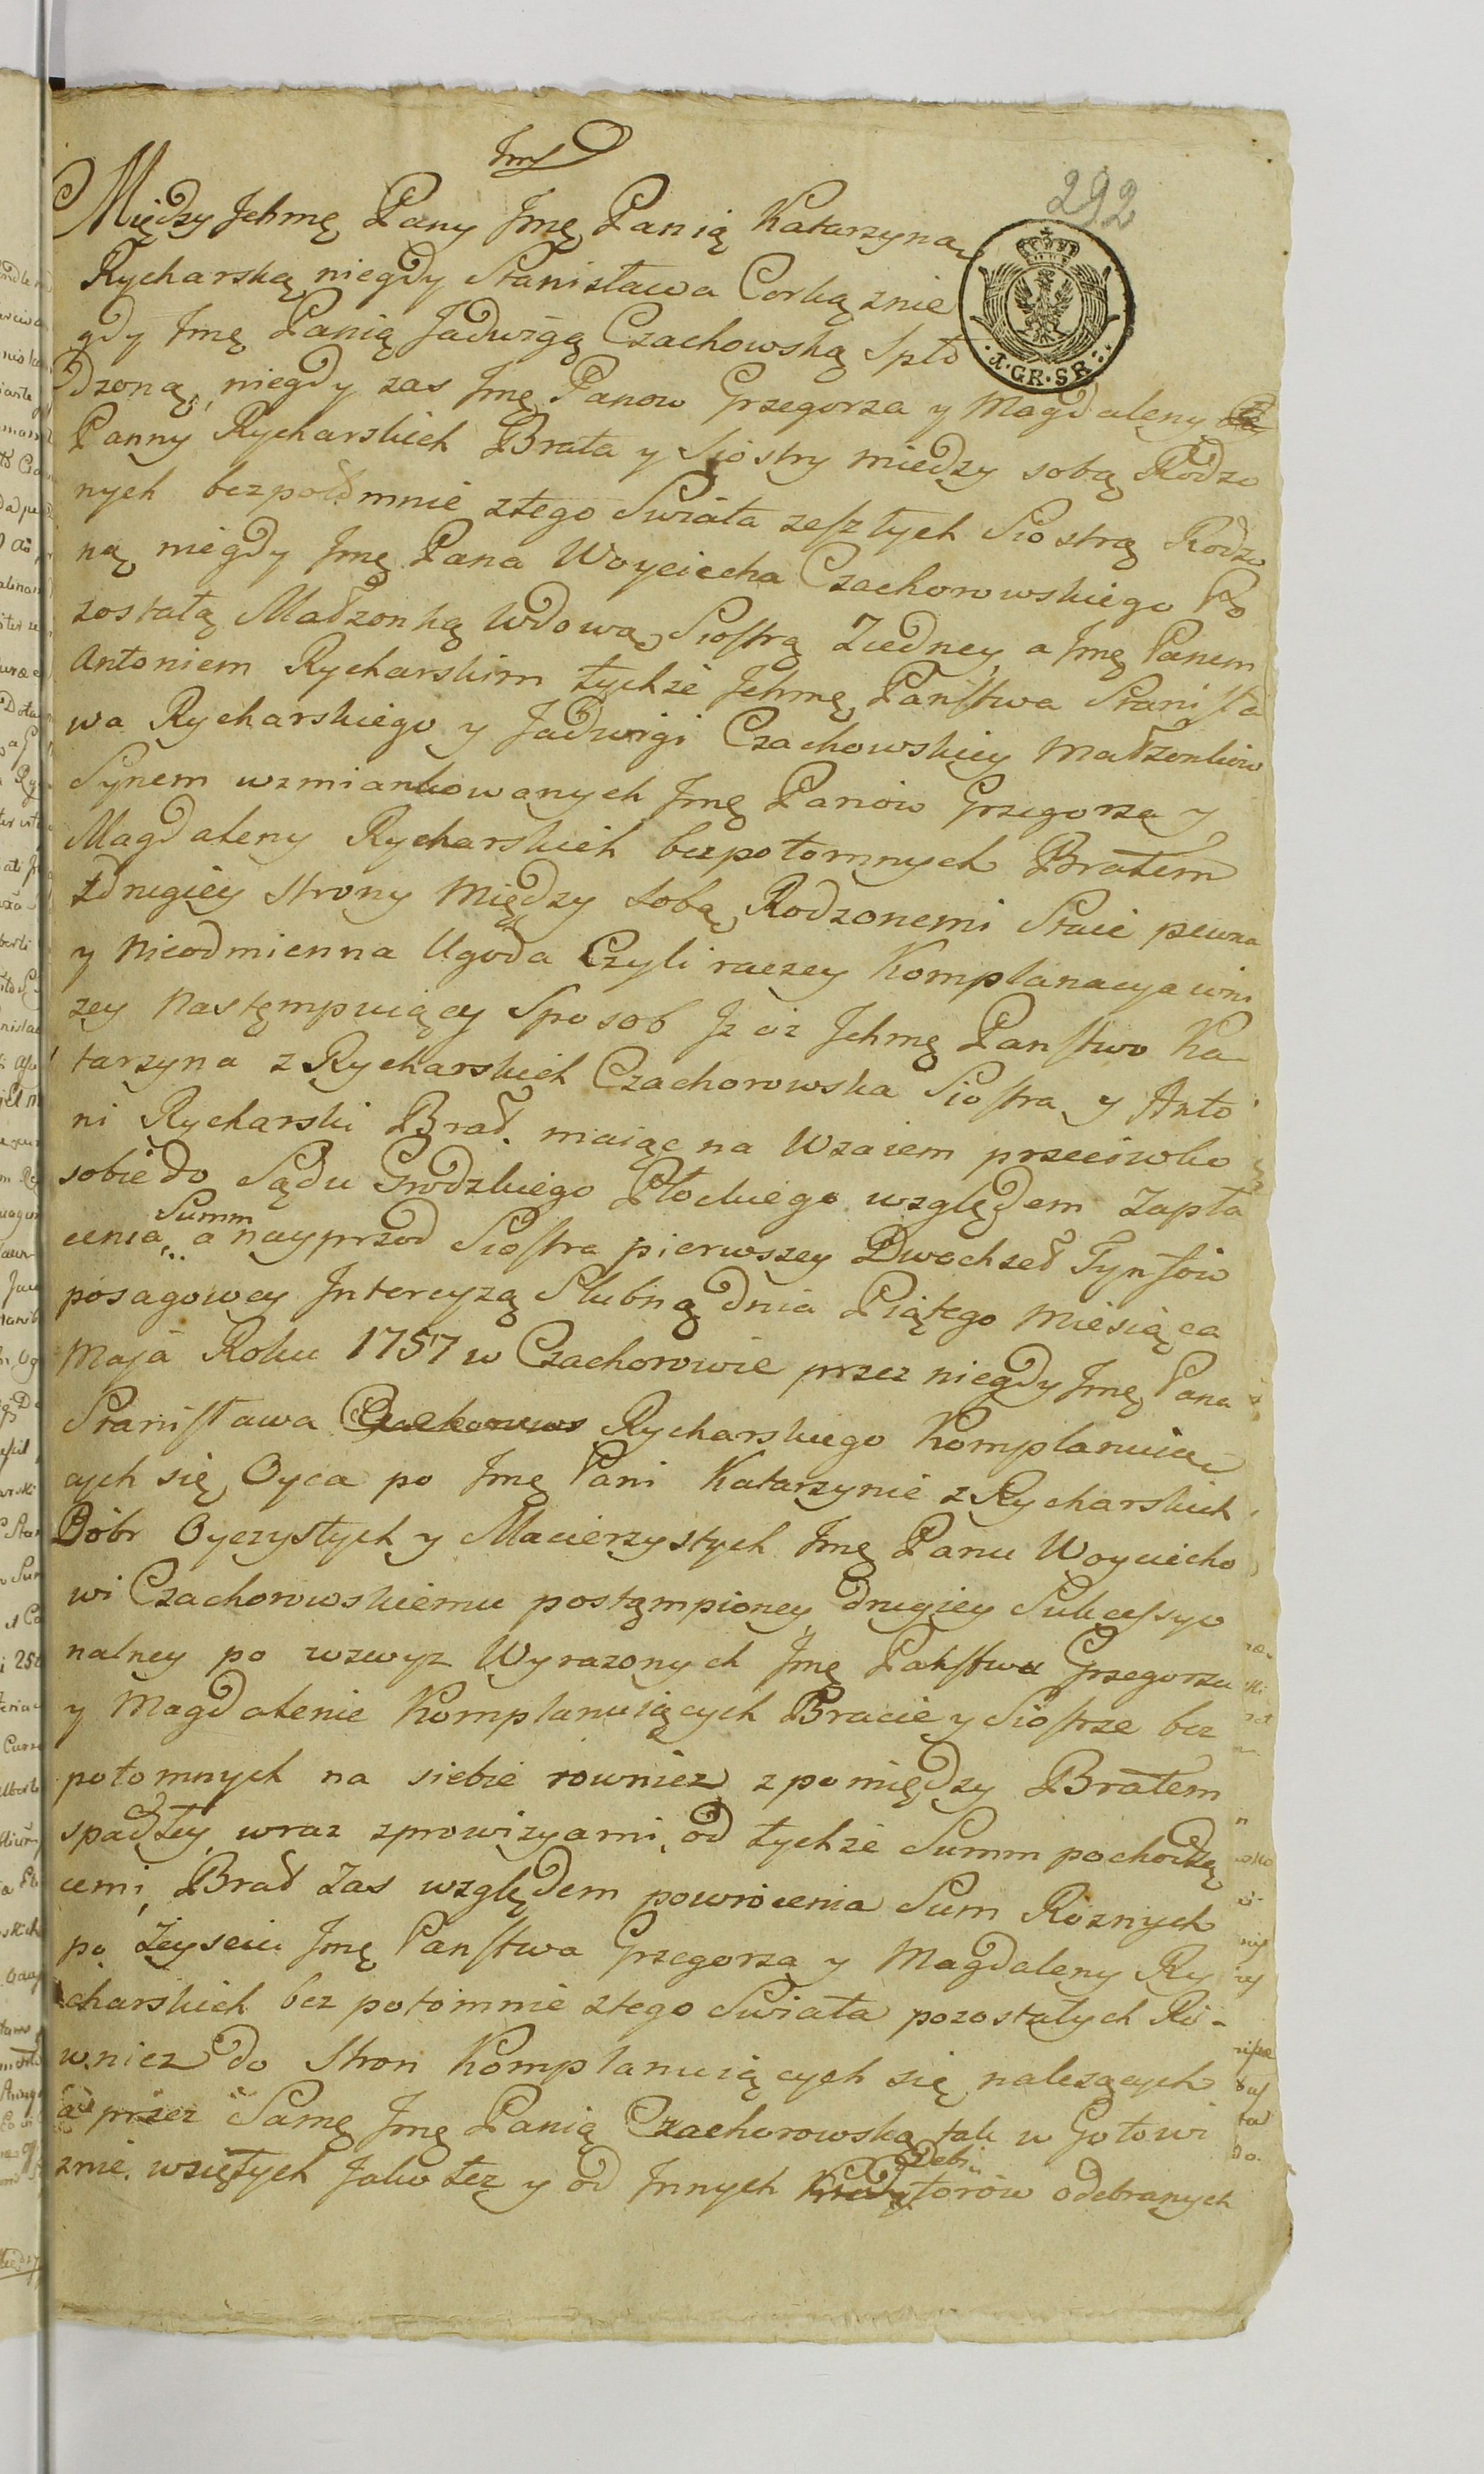 292
Między Jchmę Pany Jmę Panią Katarzyną
Rycharską niegdy Stanisława Corką znie
gdy Jmę Panią Jadwigą Czachowską Spło
·J·GR·SR·
dzoną, niegdy zas Jmę Panow Grzegorza y Magdaleny
Panny Rycharskich Brata y Siostry miedzy sobą Rodzo
nych bezpotomnie ztego Swiata zeszłych Siostrą Rodzo
ną niegdy Jmę Pana Woyciecha Czachorowskiego Po
zostałą Małzonką Wdową Siostrą Ziedney, a Jmę Panem
Antoniem Rycharskim tychże Jchmę Państwa Stanisła
wa Rycharskiego y Jadwigi Czachowskiey Małzonków
Synem wzmiankowanych Jmę Panów Grzegorza y
Magdaleny Rycharskich bezpotomnych Bratem
zdrugiey Strony między sobą Rodzonemi Staie pewna
y Nieodmienna Ugoda Czyli raczey Komplanacya wni
zey Następuiący Sposob Jż iż Jchmę Państwo Ka
tarzyna z Rycharskich Czachorowska Siostra y Anto
ni Rycharski Brat. maiąc na Wzaiem przeciwko
sobie do Sądu Grodzkiego Płockiego względem Zapła
cenia Summ a nayprzod Siostra pierwszey Dwochset Tynfów
posagowey Jntercyzą Slubną dnia Piątego Miesiąca
Maja Roku 1757 w Czachorowie przez niegdy Jmę Pana
Stanisława Rycharskiego Komplanuią
cych się Oyca po Jmę Pani Katarzynie z Rycharskich
Dóbr Oyczystych y Macierzystych Jmę Panu Woyciecho
wi Czachorowskiemu postąmpioney drugiey Sukcessyo
nalney po wzwyz Wyrazonych Jmę Państwu Grzegorzu
y Magdalenie Komplanuiących Bracie y Siostrze bez
potomnych na siebie rowniez zpomiędzy Bratem
spadłey wraz zprowizyami od tychże Summ pochodzą
cemi, Brat zas względem powrócenia Sum Róznych
po Zeyściu Jmę Państwa Grzegorza y Magdaleny Ry
charskich bez potomnie ztego Swiata pozostałych Ró-
wniez do Stron Komplanuiących się nalezących
a przez Samę Jmę Panią Czachorowską tak w Gotowi
znie wziętych Jako tez y od Jnnych Debitorów odebranych